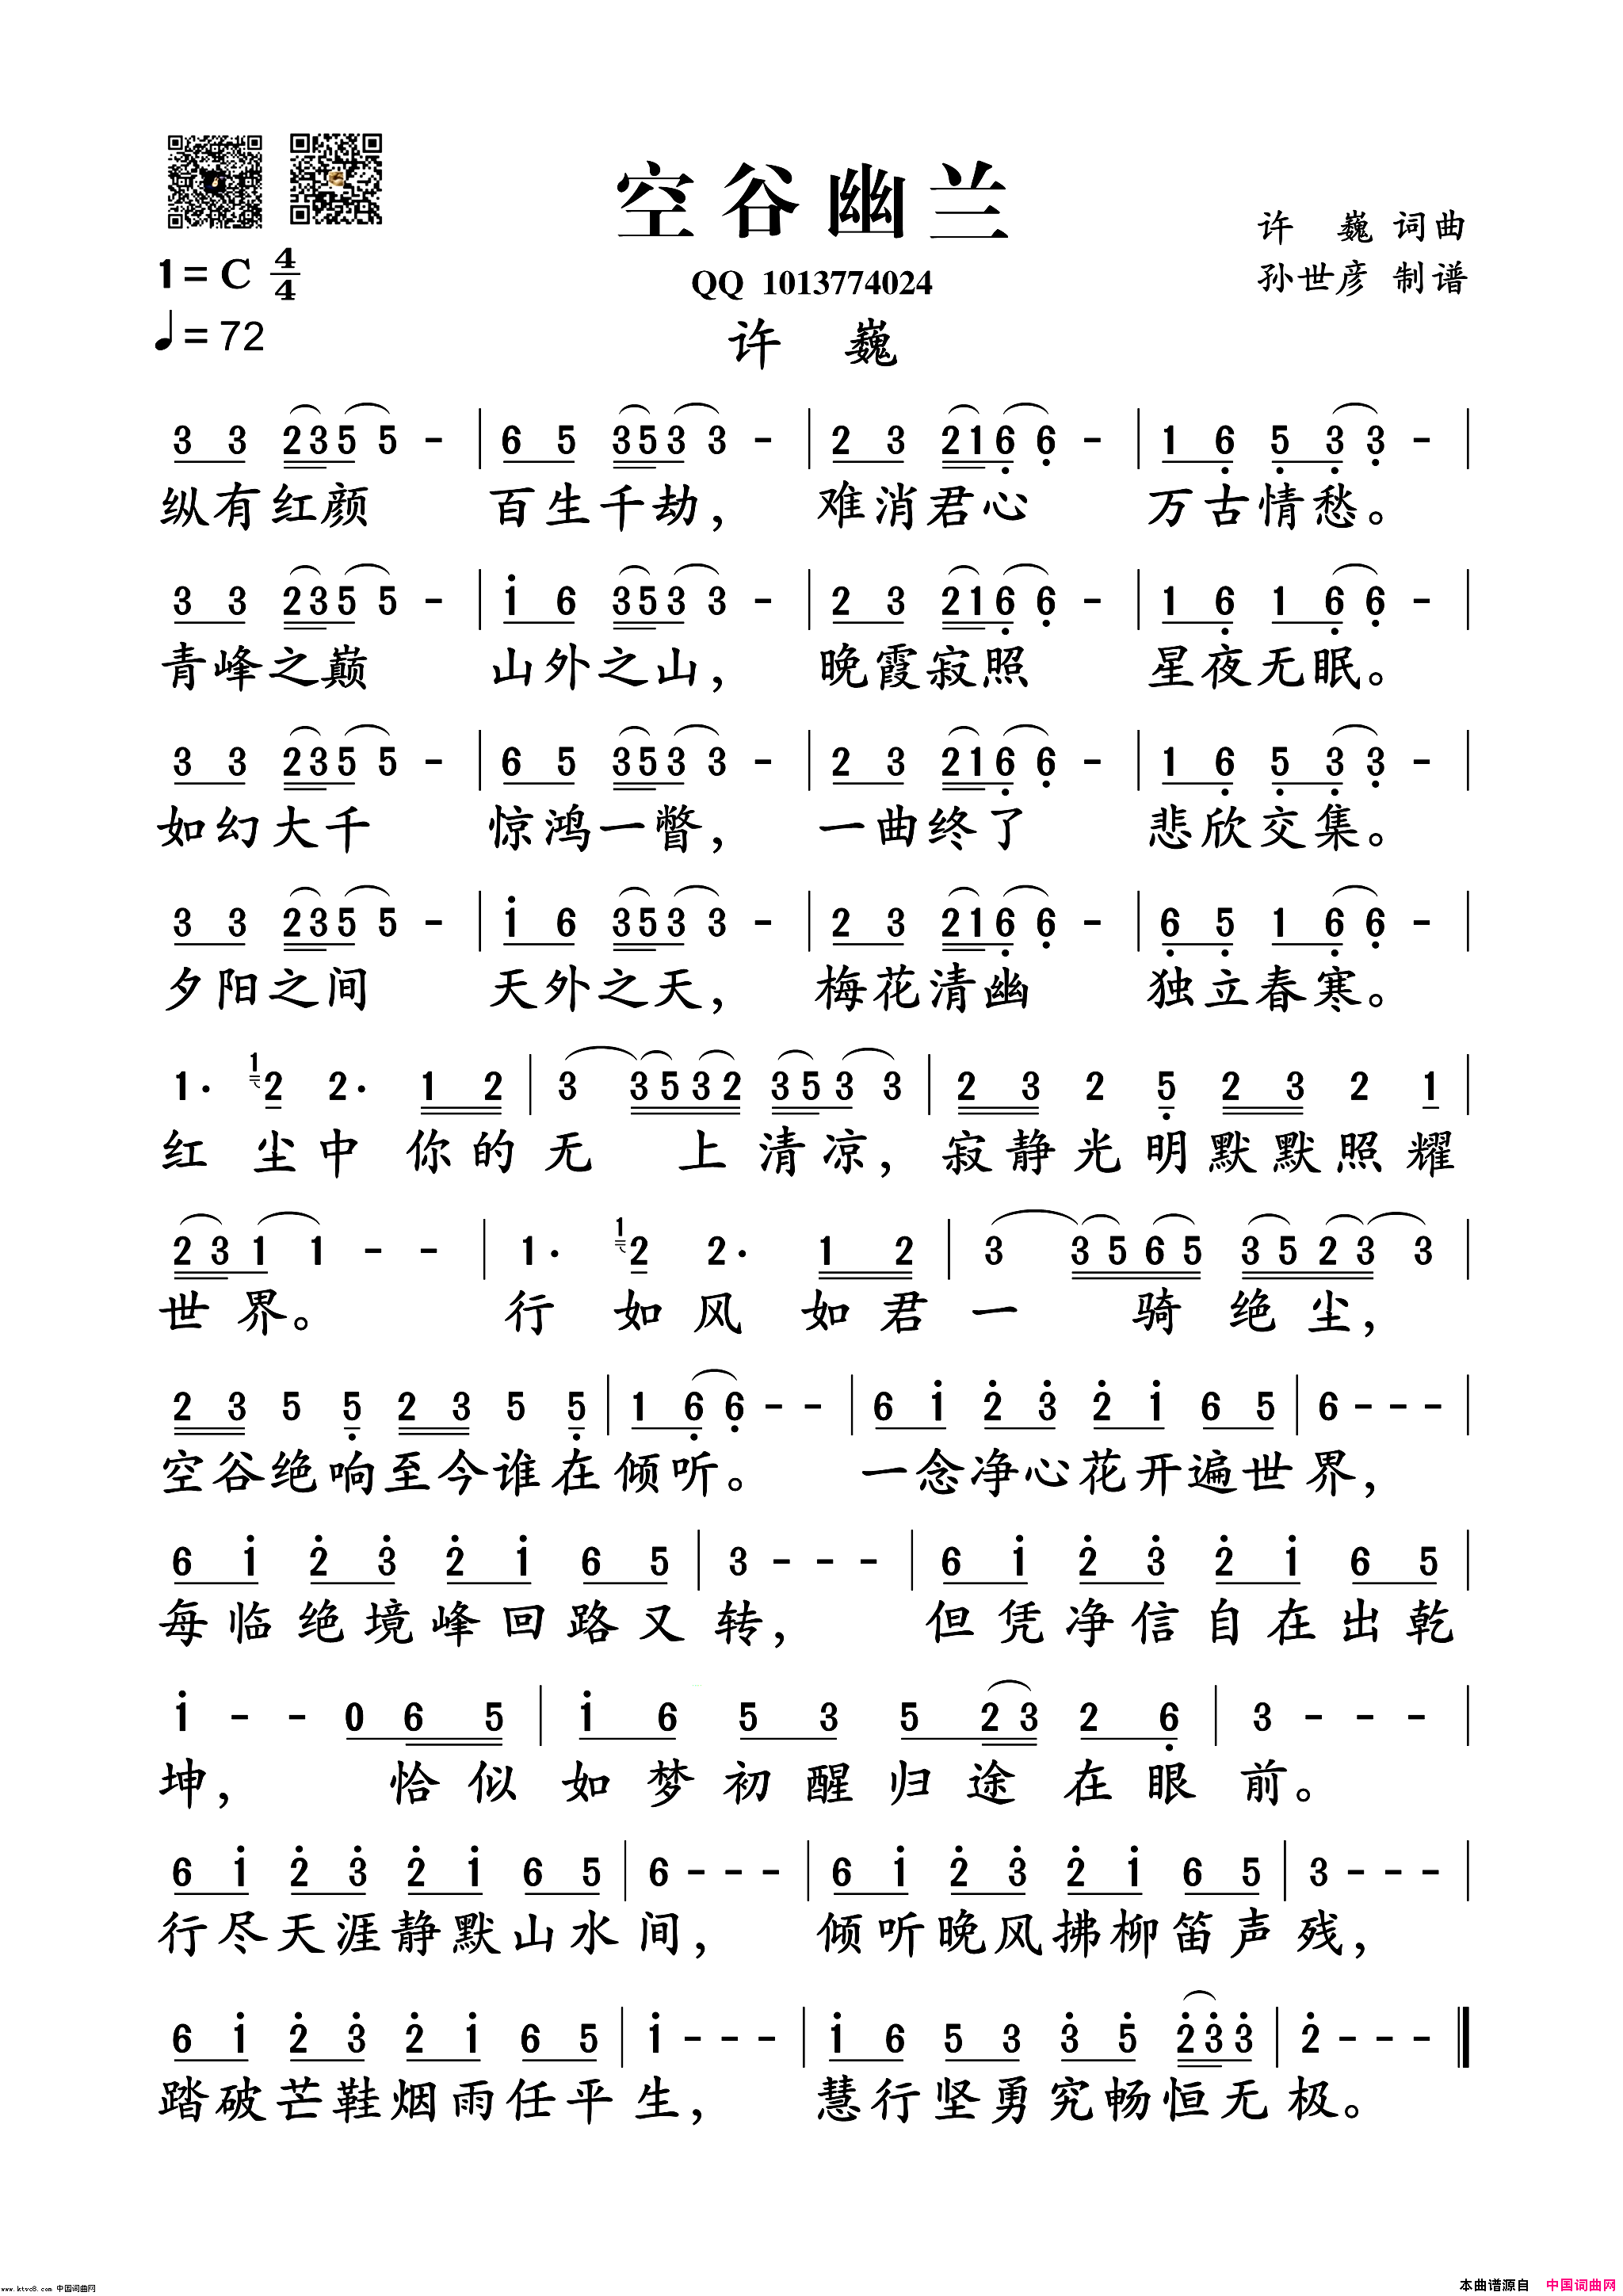 空谷幽兰
许 巍 词曲
1=C 4/4
QQ 1013774024
孙世彦 制谱
♩=72
许 巍
3 3 2 3 5 5 - | 6 5 3 5 3 3 - | 2 3 2 1 6̣ 6̣ - | 1 6̣ 5̣ 3̣ 3̣ - |
纵有红颜 百生千劫, 难消君心 万古情愁。
3 3 2 3 5 5 - | i 6 3 5 3 3 - | 2 3 2 1 6̣ 6̣ - | 1 6̣ 1 6̣ 6̣ - |
青峰之巅 山外之山, 晚霞寂照 星夜无眠。
3 3 2 3 5 5 - | 6 5 3 5 3 3 - | 2 3 2 1 6̣ 6̣ - | 1 6̣ 5̣ 3̣ 3̣ - |
如幻大千 惊鸿一瞥, 一曲终了 悲欣交集。
3 3 2 3 5 5 - | i 6 3 5 3 3 - | 2 3 2 1 6̣ 6̣ - | 6̣ 5̣ 1 6̣ 6̣ - |
夕阳之间 天外之天, 梅花清幽 独立春寒。
1· 1 2 2· 1 2 | 3 3 5 3 2 3 5 3 3 | 2 3 2 5̣ 2 3 2 1 |
红 尘中 你的无 上清凉, 寂静光明默默照耀
2 3 1 1 - - | 1· 1 2 2· 1 2 | 3 3 5 6 5 3 5 2 3 3 |
世界。 行 如风 如君一 骑绝尘,
2 3 5 5̣ 2 3 5 5̣ | 1 6̣ 6̣ - - | 6 i 2̇ 3̇ 2̇ i 6 5 | 6 - - - |
空谷绝响至今谁在倾听。 一念净心花开遍世界,
6 i 2̇ 3̇ 2̇ i 6 5 | 3 - - - | 6 i 2̇ 3̇ 2̇ i 6 5 |
每临绝境峰回路又转, 但凭净信自在出乾
i - - 0 6 5 | i 6 5 3 5 2 3 2 6̣ | 3 - - - |
坤, 恰似如梦初醒归途在眼前。
6 i 2̇ 3̇ 2̇ i 6 5 | 6 - - - | 6 i 2̇ 3̇ 2̇ i 6 5 | 3 - - - |
行尽天涯静默山水间, 倾听晚风拂柳笛声残,
6 i 2̇ 3̇ 2̇ i 6 5 | i - - - | i 6 5 3 3̇ 5̇ 2̇ 3̇ 3̇ | 2̇ - - - ‖
踏破芒鞋烟雨任平生, 慧行坚勇究畅恒无极。
www.ktvc8.com 中国词曲网
本曲谱源自 中国词曲网